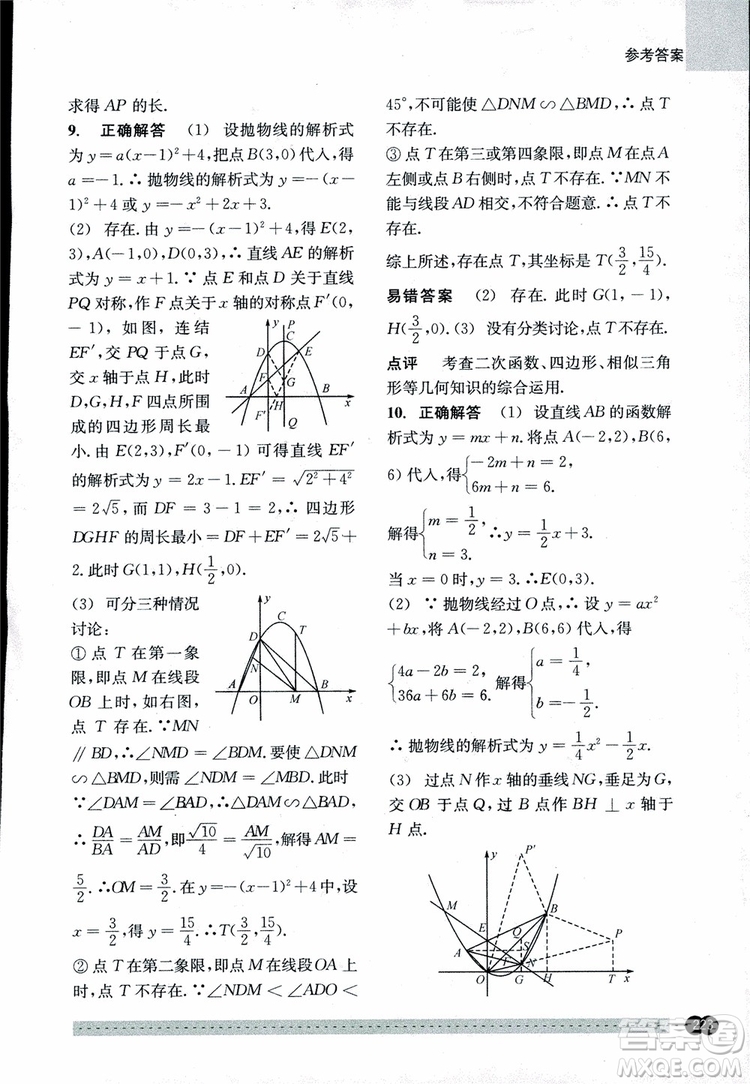 参考答案
求得 AP 的长.
9. 正确解答 (1) 设抛物线的解析式
为 y=a(x-1)²+4,把点 B(3,0)代入,得
a=-1.∴抛物线的解析式为 y=-(x-
1)²+4 或 y=-x²+2x+3.
(2) 存在.由 y=-(x-1)²+4,得 E(2,
3),A(-1,0),D(0,3),∴直线 AE 的解析
式为 y=x+1.∵点 E 和点 D 关于直线
PQ 对称,作 F 点关于 x 轴的对称点 F′(0,
-1),如图,连结
EF′,交 PQ 于点 G,
交 x 轴于点 H,此时
D、G、H、F 四点所围
成的四边形周长最
小.由 E(2,3),F′(0,-1)可得直线 EF′
的解析式为 y=2x-1.EF′=√(2²+4²)
=2√5,而 DF=3-1=2,∴四边形
DGHF 的周长最小=DF+EF′=2√5+
2.此时 G(1,1),H(1/2,0).
y P D E F G A H B x F′ Q
(3) 可分三种情况
讨论:
①点 T 在第一象
限,即点 M 在线段
OB 上时,如右图,
点 T 存在.∵MN
∥BD,∴∠NMD=∠BDM.要使△DNM
∽△BMD,则需∠NDM=∠MBD.此时
∵∠DAM=∠BAD,∴△DAM∽△BAD,
∴DA/BA=AM/AD,即√10/4=AM/√10,解得 AM=
5/2.∴OM=3/2.在 y=-(x-1)²+4 中,设
x=3/2,得 y=15/4.∴T(3/2,15/4).
y C D T N A O M B x
②点 T 在第二象限,即点 M 在线段 OA 上
时,点 T 不存在.∵∠NDM<∠ADO<
45°,不可能使△DNM∽△BMD,∴点 T
不存在.
③点 T 在第三或第四象限,即点 M 在点 A
左侧或点 B 右侧时,点 T 不存在.∵MN 不
能与线段 AD 相交,不符合题意.∴点 T 不
存在.
综上所述,存在点 T,其坐标是 T(3/2,15/4).
易错答案 (2) 存在.此时 G(1,-1),
H(3/2,0).(3) 没有分类讨论,点 T 不存在.
点评 考查二次函数、四边形、相似三角
形等几何知识的综合运用.
10. 正确解答 (1) 设直线 AB 的函数解
析式为 y=mx+n.将点 A(-2,2),B(6,
6)代入,得{-2m+n=2, 6m+n=6.
解得{m=1/2, n=3. ∴y=1/2x+3.
当 x=0 时,y=3.∴E(0,3).
(2) ∵抛物线经过 O 点,∴设 y=ax²
+bx,将 A(-2,2)、B(6,6)代入,得
{4a-2b=2, 36a+6b=6. 解得{a=1/4, b=-1/2.
∴抛物线的解析式为 y=1/4x²-1/2x.
(3) 过点 N 作 x 轴的垂线 NG,垂足为 G,
交 OB 于点 Q,过 B 点作 BH⊥x 轴于
H 点.
y P′ M B E Q P A S N O G H T x
223
答案圈
MXQE.COM